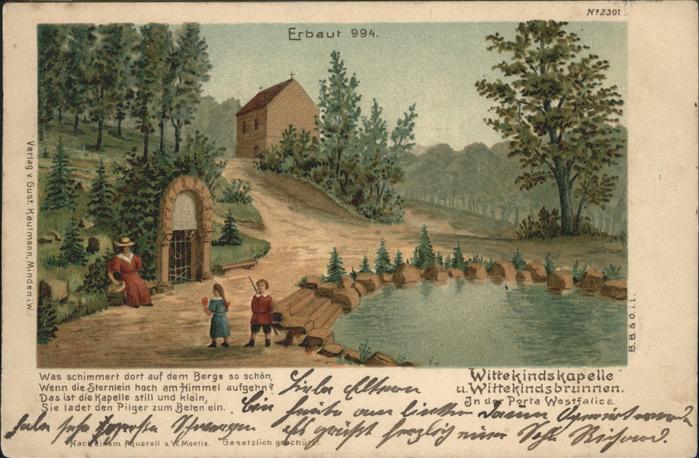 Nº 2301
Erbaut 994.
Verlag v. Gust. Keulmann, Minden i. W.
B. B. & O. i. L.
Was schimmert dort auf dem Berge so schön,
Wenn die Sternlein hoch am Himmel aufgehn?
Das ist die Kapelle still und klein,
Sie ladet den Pilger zum Beten ein.
Wittekindskapelle
u. Wittekindsbrunnen.
In der Porta Westfalica.
Liebe Eltern
Bin heute am linken
habe sehr
Es grüßt herzlich euer Sohn Richard.
Nach einem Aquarell v. W. Moelle. Gesetzlich geschützt.